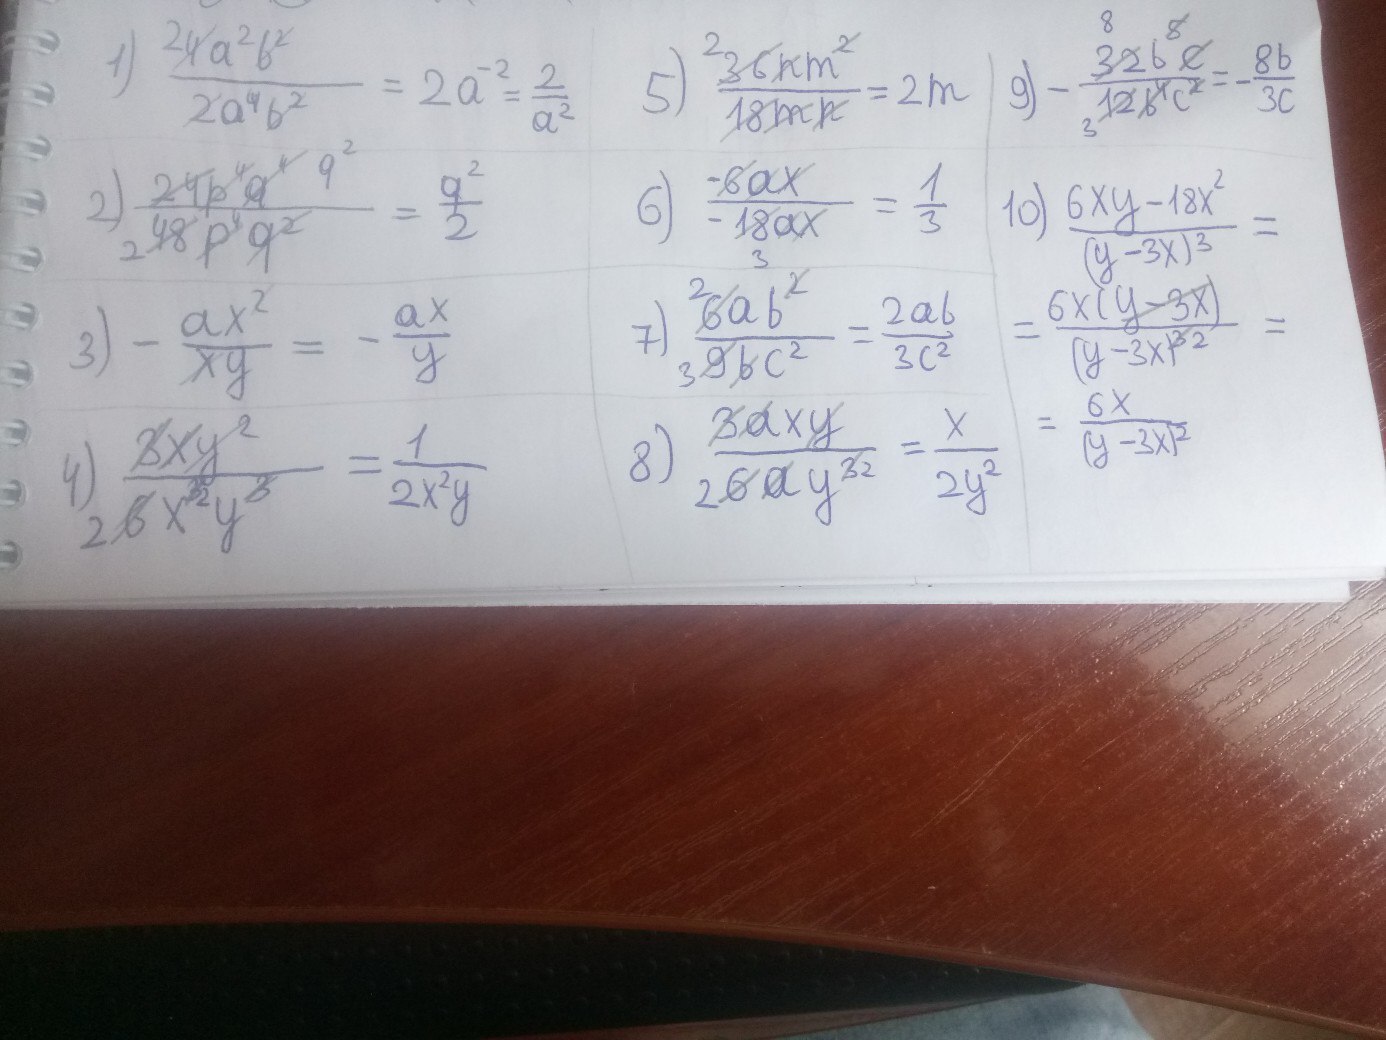 1) 4a²b² / 2a⁴b² = 2a⁻² = 2/a²
2) 24p⁴q⁴ / 48p⁴q² = q²/2
3) - ax²/xy = - ax/y
4) 3xy² / 6x³y³ = 1/2x²y
5) 36nm² / 18mn = 2m
6) -6ax / -18ax = 1/3
7) 6ab² / 9bc² = 2ab/3c²
8) 3axy / 6ay³ = x/2y²
9) - 32b⁸c / 12b⁷c² = - 8b/3c
10) 6xy-18x² / (y-3x)³ =
= 6x(y-3x) / (y-3x)³ ² =
= 6x / (y-3x)²